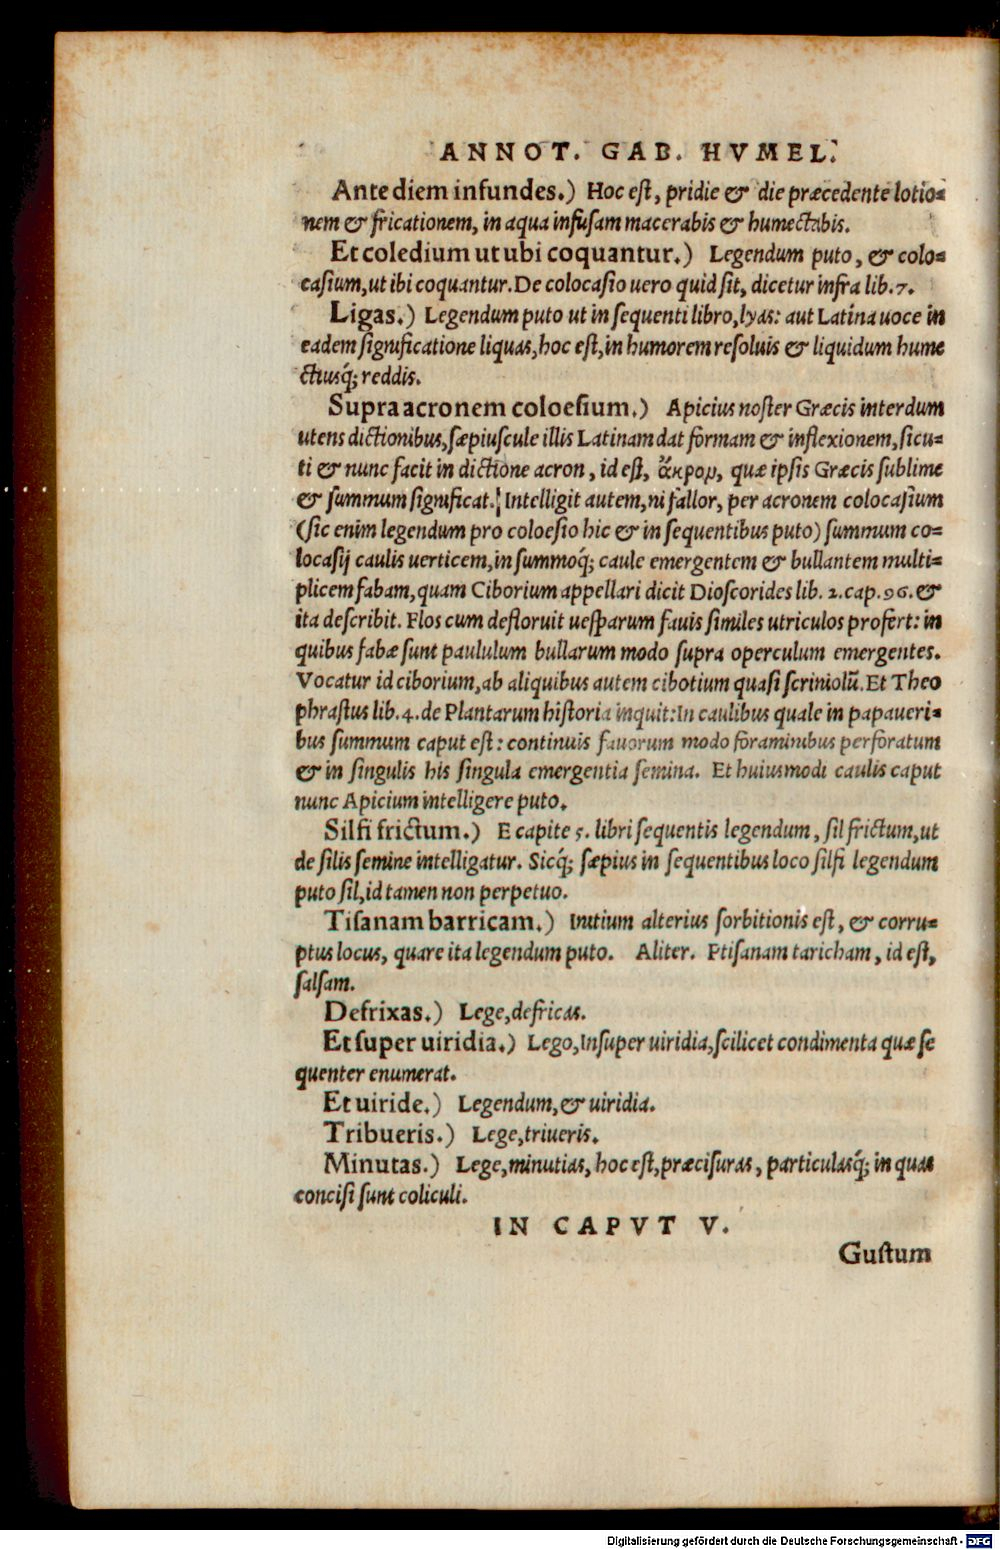 ANNOT. GAB. HVMEL.
Ante diem infundes.) Hoc est, pridie & die præcedente lotio-
nem & fricationem, in aqua infusam macerabis & humectabis.
Et coledium ut ubi coquantur.) Legendum puto, & colo-
casium, ut ibi coquantur. De colocasio uero quid sit, dicetur infra lib. 7.
Ligas.) Legendum puto ut in sequenti libro, lyas: aut Latina uoce in
eadem significatione liquas, hoc est, in humorem resoluis & liquidum hume
ctiusq́; reddis.
Supra acronem coloesium.) Apicius noster Græcis interdum
utens dictionibus, sæpiuscule illis Latinam dat formam & inflexionem, sicu-
ti & nunc facit in dictione acron, id est, ἄκρομ, quæ ipsis Græcis sublime
& summum significat. Intelligit autem, ni fallor, per acronem colocasium
(sic enim legendum pro coloesio hic & in sequentibus puto) summum co-
locasij caulis uerticem, in summoq́; caule emergentem & bullantem multi-
plicem fabam, quam Ciborium appellari dicit Dioscorides lib. 2. cap. 96. &
ita describit. Flos cum defloruit uesparum fauis similes utriculos profert: in
quibus fabæ sunt paululum bullarum modo supra operculum emergentes.
Vocatur id ciborium, ab aliquibus autem cibotium quasi scriniolũ. Et Theo
phrastus lib. 4. de Plantarum historia inquit: In caulibus quale in papaueri-
bus summum caput est: continuis fauorum modo foraminibus perforatum
& in singulis his singula emergentia semina. Et huiusmodi caulis caput
nunc Apicium intelligere puto.
Silfi frictum.) E capite 5. libri sequentis legendum, sil frictum, ut
de silis semine intelligatur. Sicq́; sæpius in sequentibus loco silfi legendum
puto sil, id tamen non perpetuo.
Tisanam barricam.) Initium alterius sorbitionis est, & corru-
ptus locus, quare ita legendum puto. Aliter. Ptisanam taricham, id est,
salsam.
Defrixas.) Lege, defricas.
Et super uiridia.) Lego, Insuper uiridia, scilicet condimenta quæ se
quenter enumerat.
Et uiride.) Legendum, & uiridia.
Tribueris.) Lege, triueris.
Minutas.) Lege, minutias, hoc est, præcisuras, particulasq́; in quas
concisi sunt coliculi.
IN CAPVT V.
Gustum
Digitalisierung gefördert durch die Deutsche Forschungsgemeinschaft - DFG